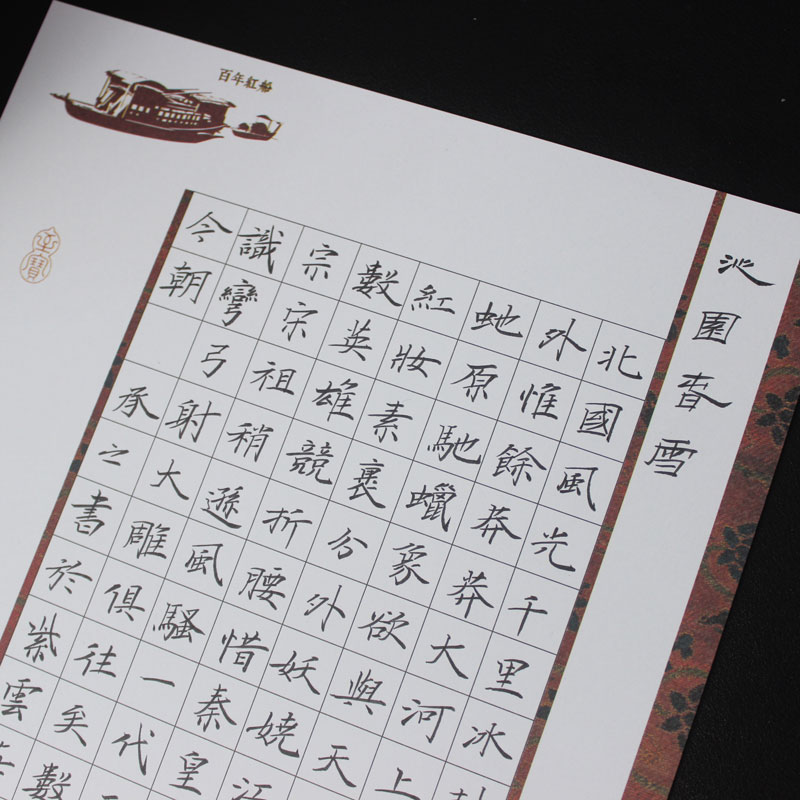 百年紅船
沁園春雪
北國風光千里冰
外惟餘莽莽大河上
蛇原馳蠟象欲與天
紅妝素裹分外妖嬈江
數英雄競折腰惜秦皇
宗宋祖稍遜風騷一代
識彎弓射大雕俱往矣數
今朝
承之書於紫雲